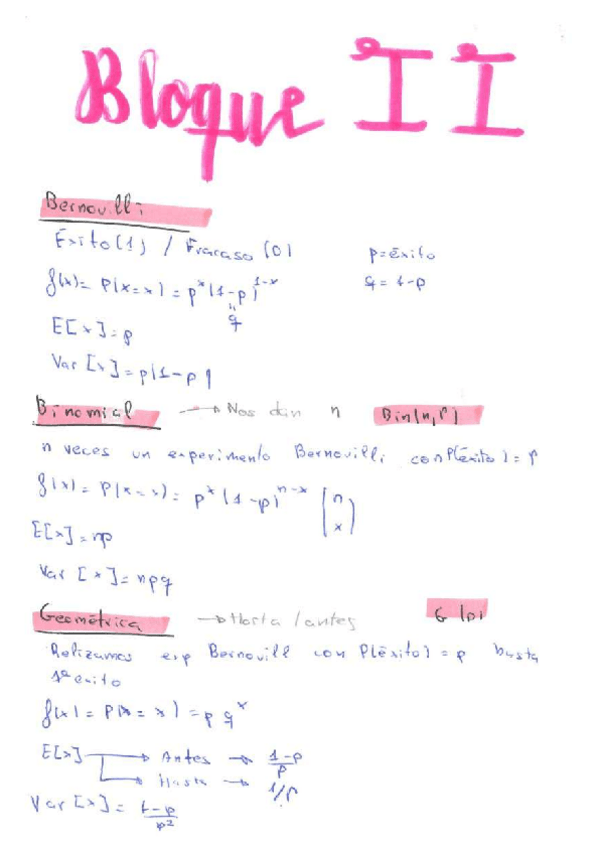 Bloque II
Bernoulli:
Éxito (1) / Fracaso (0) p=éxito
f(x)= P(X=x) = p^x (1-p)^{1-x} q = 1-p
" q
E[x]=p
Var [x]=p(1-p)
Binomial → Nos dan n Bin(n,p)
n veces un experimento Bernouilli con P(éxito)=p
f(x) = P(X=x) = p^x (1-p)^{n-x} (n x)
E[x]=np
Var [x]=npq
Geométrica → Hasta / antes G(p)
Relizamos exp Bernouill con P(éxito)=p hasta
1º exito
f(x) = P(X=x) = p q^x
E[x] → Antes → 1-p/p
→ Hasta → 1/p
Var [x] = 1-p/p²